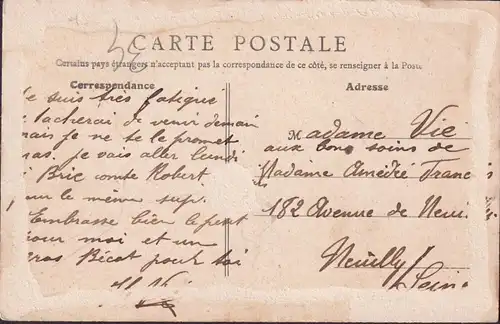 CARTE POSTALE
Certains pays étrangers n'acceptent pas la correspondance de ce côté, se renseigner à la Poste
Correspondance
Adresse
Je suis très fatigué
tacherai de venir demain
mais je ne te le promet
pas. je vais aller lundi
Brie comte Robert
sur le même sup.
Embrasse bien le petit
pour moi et un
gros Bécot pour toi
Madame Vié
aux bons soins de
Madame Amédée Franc
182 Avenue de Neui
Neuilly/
Seine